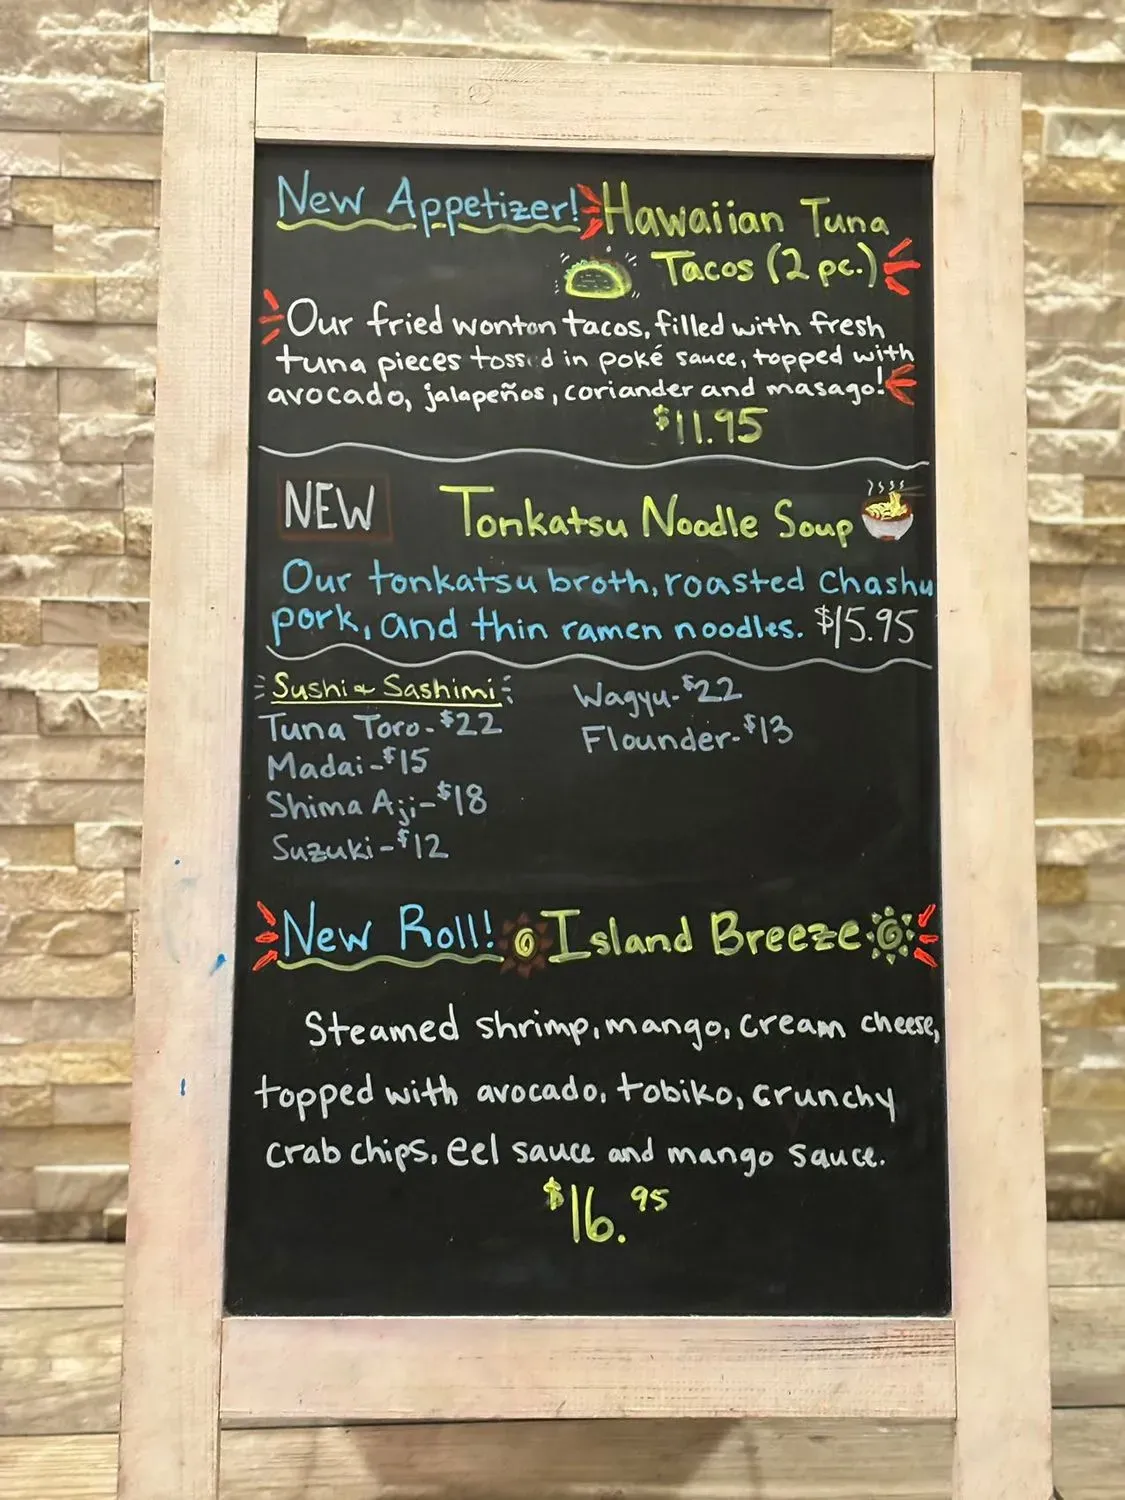 New Appetizer! Hawaiian Tuna
Tacos (2 pc.)
Our fried wonton tacos, filled with fresh
tuna pieces tossed in poké sauce, topped with
avocado, jalapeños, coriander and masago!
$11.95
NEW Tonkatsu Noodle Soup
Our tonkatsu broth, roasted chashu
pork, and thin ramen noodles. $15.95
Sushi & Sashimi
Tuna Toro - $22
Madai - $15
Shima Aji - $18
Suzuki - $12
Wagyu - $22
Flounder - $13
New Roll! Island Breeze
Steamed shrimp, mango, cream cheese,
topped with avocado, tobiko, crunchy
crab chips, eel sauce and mango sauce.
$16.95